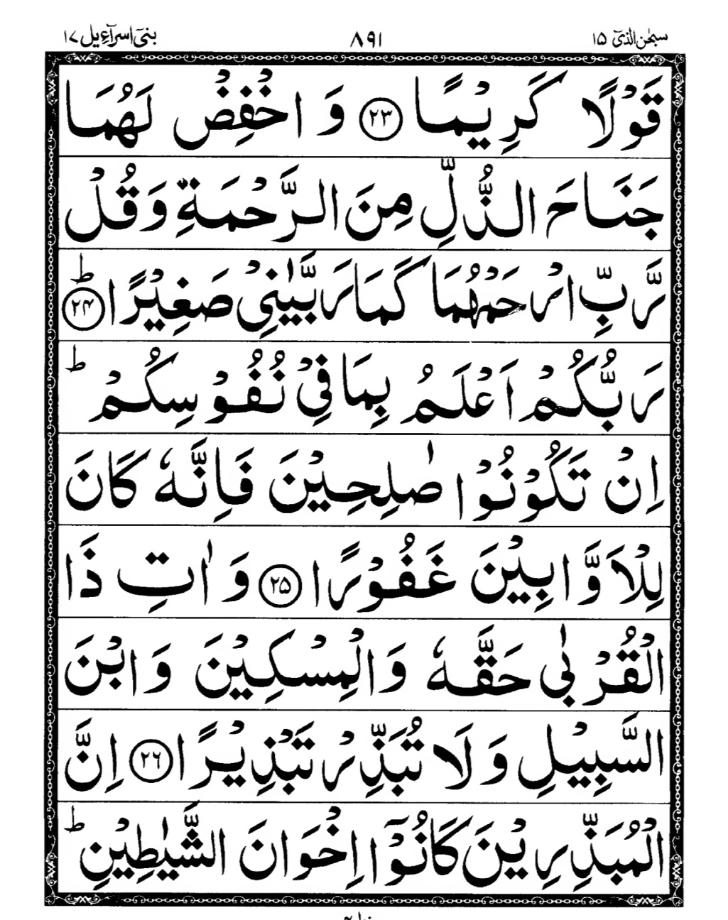 سبحٰن الذیٓ ١٥ ٨٩١ بنیٓ اسرآءیل ١٧
قَوْلًا كَرِيْمًا ﴿٢٣﴾ وَ اخْفِضْ لَهُمَا
جَنَاحَ الذُّلِّ مِنَ الرَّحْمَةِ وَقُلْ
رَّبِّ ارْحَمْهُمَا كَمَا رَبَّيٰنِىْ صَغِيْرًا ﴿ؕ٢٤﴾
رَبُّكُمْ اَعْلَمُ بِمَا فِىْ نُفُوْسِكُمْ ؕ
اِنْ تَكُوْنُوْا صٰلِحِيْنَ فَاِنَّهٗ كَانَ
لِلْاَوَّابِيْنَ غَفُوْرًا ﴿٢٥﴾ وَ اٰتِ ذَا
الْقُرْبٰى حَقَّهٗ وَالْمِسْكِيْنَ وَابْنَ
السَّبِيْلِ وَلَا تُبَذِّرْ تَبْذِيْرًا ﴿٢٦﴾ اِنَّ
الْمُبَذِّرِيْنَ كَانُوْۤا اِخْوَانَ الشَّيٰطِيْنِ ؕ